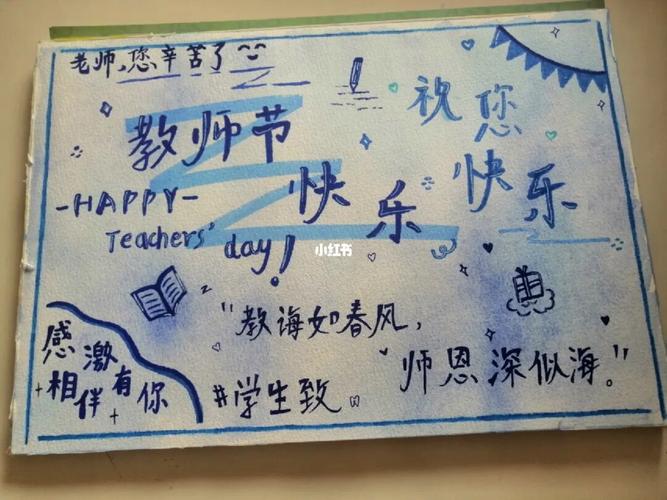 老师,您辛苦了
教师节
快乐
祝您
快乐
-HAPPY-
Teachers'
day!
小红书
"教诲如春风,
师恩深似海。"
#学生致。
感激
相伴有你